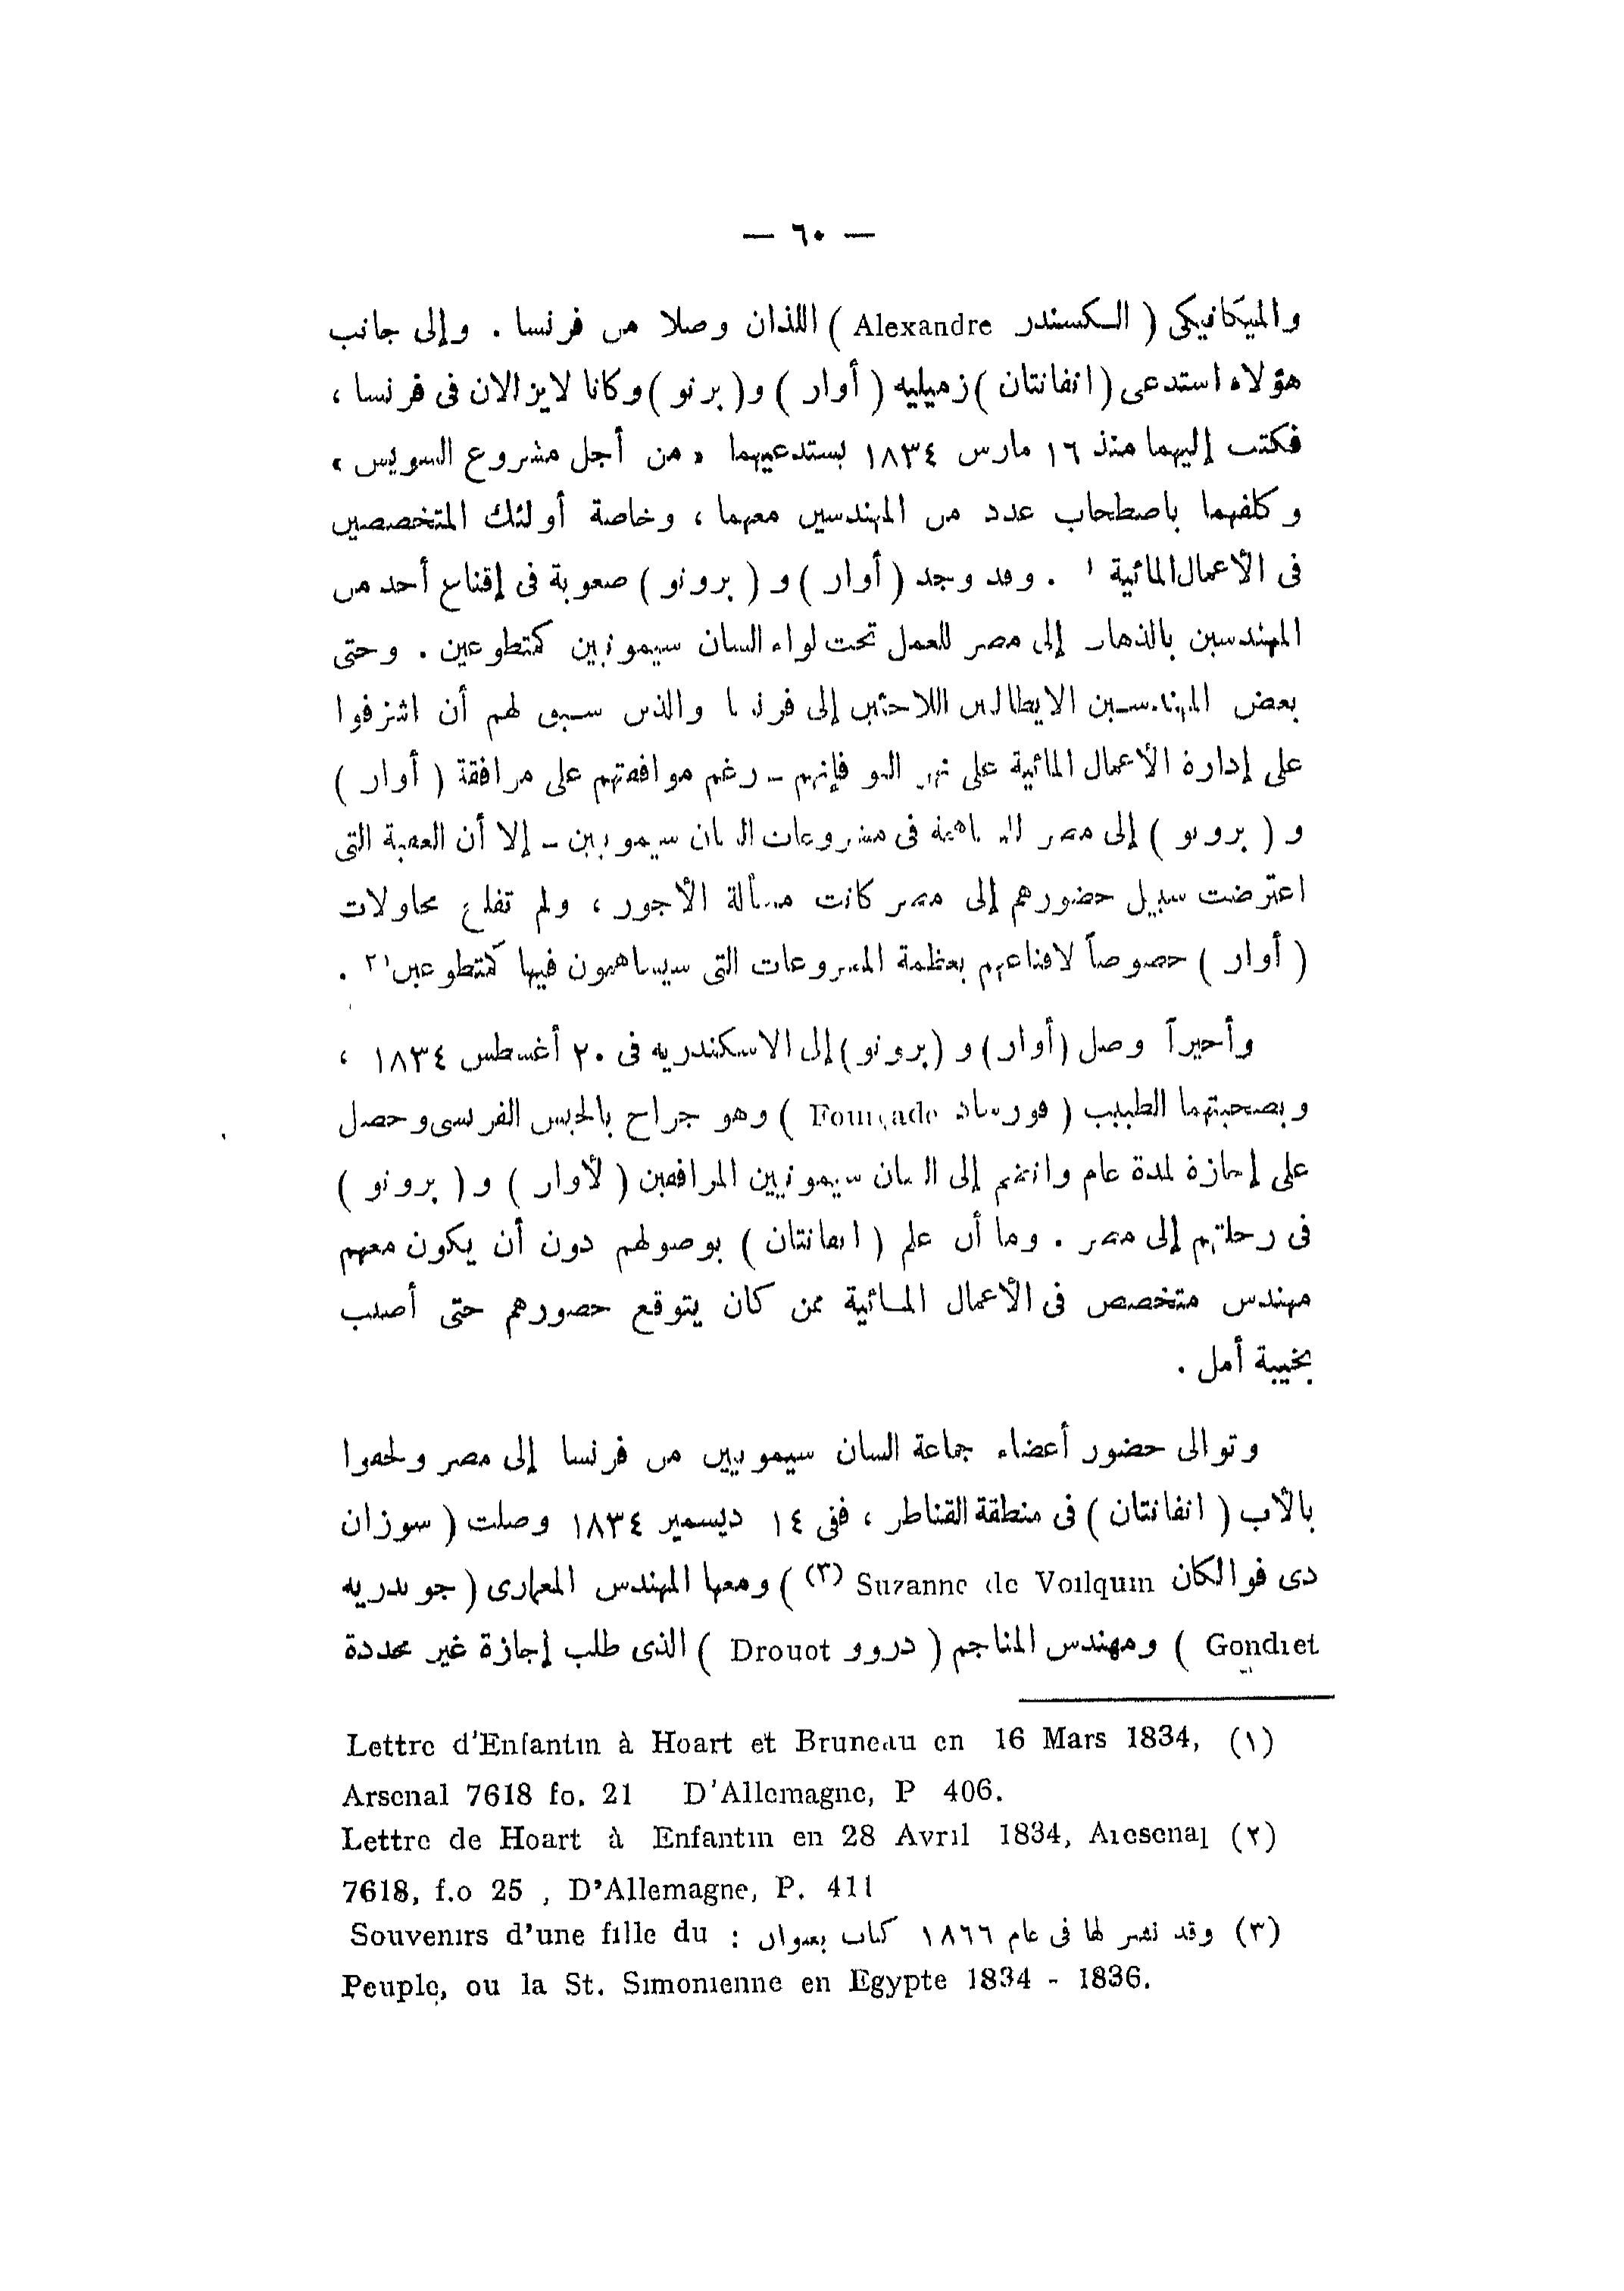 — ٦٠ —
والميكانيكى ( الكسندر Alexandre ) اللذان وصلا من فرنسا . وإلى جانب
هؤلاء استدعى ( انفانتان ) زميليه ( أوار ) و ( برنو ) وكانا لايزالان فى فرنسا ،
فكتب إليهما منذ ١٦ مارس ١٨٣٤ يستدعيهما « من أجل مشروع السويس »
وكلفهما باصطحاب عدد من المهندسين معهما ، وخاصة أولئك المتخصصين
فى الأعمال المائية ١ . وقد وجد ( أوار ) و ( برونو ) صعوبة فى إقناع أحد من
المهندسين بالذهاب إلى مصر للعمل تحت لواء السان سيمونيين كمتطوعين . وحتى
بعض المهندسين الايطاليين اللاجئين إلى فرنسا والذين سبق لهم أن اشرفوا
على إدارة الأعمال المائية على نهر البو فإنهم – رغم موافقتهم على مرافقة ( أوار )
و ( برونو ) إلى مصر للمساهمة فى مشروعات السان سيمونيين – إلا أن العقبة التى
اعترضت سبيل حضورهم إلى مصر كانت مسألة الأجور ، ولم تفلح محاولات
( أوار ) خصوصاً لاقناعهم بعظمة المشروعات التى سيساهمون فيها كمتطوعين ٢ .
وأخيراً وصل ( أوار ) و ( برونو ) إلى الاسكندريه فى ٢٠ أغسطس ١٨٣٤ ،
وبصحبتهما الطبيب ( فورساد Fourçade ) وهو جراح بالجيش الفرنسى وحصل
على إجازة لمدة عام وانضم إلى السان سيمونيين المرافقين ( لأوار ) و ( برونو )
فى رحلتهم إلى مصر . وما أن علم ( انفانتان ) بوصولهم دون أن يكون معهم
مهندس متخصص فى الأعمال المائية ممن كان يتوقع حضورهم حتى أصيب
بخيبة أمل .
وتوالى حضور أعضاء جماعة السان سيمونيين من فرنسا إلى مصر ولحقوا
بالأب ( انفانتان ) فى منطقة القناطر ، ففى ١٤ ديسمبر ١٨٣٤ وصلت ( سوزان
دى فوالكان Suzanne de Voilquin (٣) ) ومعها المهندس المعمارى ( جوندريه
Gondret ) ومهندس المناجم ( دروو Drouot ) الذى طلب إجازة غير محددة
(١) Lettre d'Enfantin à Hoart et Bruneau en 16 Mars 1834,
Arsenal 7618 fo. 21 D'Allemagne, P 406.
(٢) Lettre de Hoart à Enfantin en 28 Avril 1834, Aresenal
7618, f.o 25 , D'Allemagne, P. 411
(٣) وقد نشر لها فى عام ١٨٦٦ كتاب بعنوان : Souvenirs d'une fille du
Peuple, ou la St. Simonienne en Egypte 1834 - 1836.